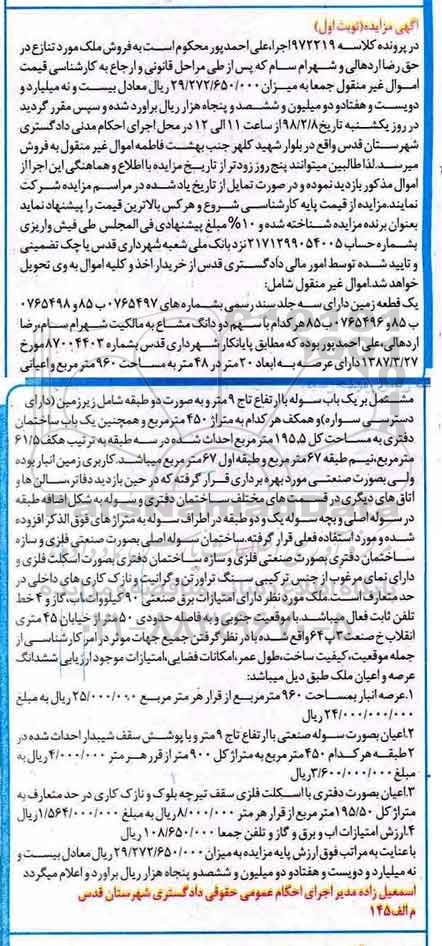 آگهی مزایده(نوبت اول)
در پرونده کلاسه ۹۷۲۲۱۹اجرا،علی احمدپور محکوم است به فروش ملک مورد تنازع در
حق رضا اردهالی و شهرام سام که پس از طی مراحل قانونی و ارجاع به کارشناسی قیمت
اموال غیر منقول جمعا به میزان ۲۹/۲۷۲/۶۵۰/۰۰۰ ریال معادل بیست و نه میلیارد و
دویست و هفتادو دو میلیون و ششصد و پنجاه هزار ریال براورد شده و سپس مقرر گردید
در روز یکشنبه تاریخ ۹۸/۲/۸از ساعت ۱۱ الی ۱۲ در محل اجرای احکام مدنی دادگستری
شهرستان قدس واقع در بلوار شهید کلهر جنب بهشت فاطمه اموال غیر منقول به فروش
میرسد.لذا طالبین میتوانند پنج روز زودتر از تاریخ مزایده با اطلاع و هماهنگی این اجرا از
اموال مذکور بازدید نموده و در صورت تمایل از تاریخ یاد شده در مراسم مزایده شرکت
نمایند.مزایده از قیمت پایه کارشناسی شروع و هر کس بالاترین قیمت را پیشنهاد نماید
بعنوان برنده مزایده شناخته شده و ۱۰% مبلغ پیشنهادی فی المجلس طی فیش واریزی
بشماره حساب ۲۱۷۱۲۹۹۰۵۴۰۰۵ نزد بانک ملی شعبه شهرداری قدس یا چک تضمینی
و تایید شده توسط امور مالی دادگستری قدس از خریدار اخذ و کلیه اموال به وی تحویل
خواهد شد.اموال غیر منقول شامل:
یک قطعه زمین دارای سه جلد سند رسمی بشماره های ۰۷۶۵۴۹۷ب ۸۵ و ۰۷۶۵۴۹۸
ب ۸۵ و ۰۷۶۵۴۹۶ب ۸۵ هر کدام با سهم دو دانگ مشاع به مالکیت شهرام سام،رضا
اردهالی،علی احمدپور بوده که مطابق پایانکار شهرداری قدس بشماره ۸۷۰۰۴۴۰۲مورخ
۱۳۸۷/۳/۲۷دارای عرصه به ابعاد ۲۰متر در ۴۸متر به مساحت ۹۶۰متر مربع و اعیانی
مشتمل بر یک باب سوله با ارتفاع تاج ۹متر و به صورت دو طبقه شامل زیرزمین (دارای
دسترسی سواره)و همکف هر کدام به متراژ ۴۵۰ مترمربع و همچنین یک باب ساختمان
دفتری به مساحت کل ۱۹۵.۵ متر مربع احداث شده در سه طبقه به ترتیب همکف ۶۱/۵
متر مربع،نیم طبقه ۶۷متر مربع و طبقه اول ۶۷متر مربع میباشد.کاربری زمین انبار بوده
ولی بصورت صنعتی مورد بهره برداری قرار گرفته که در حین بازدید دفاتر،سالن ها و
اتاق های دیگری در قسمت های مختلف ساختمان دفتری و سوله به شکل اضافه طبقه
در سوله اصلی و بچه سوله یک و دو طبقه در اطراف سوله به متراژ های فوق الذکر افزوده
شده و مورد استفاده فعلی قرار گرفته.ساختمان سوله اصلی بصورت صنعتی فلزی و سازه
ساختمان دفتری بصورت صنعتی فلزی و سازه ساختمان دفتری بصورت اسکلت فلزی و
دارای نمای مرغوب از جنس ترکیبی سنگ تراورتن و گرانیت و نازک کاری های داخلی در
حد متعارف است.ملک مورد نظر دارای امتیازات برق صنعتی ۹۰کیلووات،آب،گاز و ۴ خط
تلفن ثابت فعال میباشد.با موقعیت جنوبی و به فاصله حدودی ۵۰متر از خیابان ۴۵متری
انقلاب خ صنعت ۲پ ۶۴واقع شده با در نظر گرفتن جمیع جهات موثر در امر کارشناسی از
جمله موقعیت،کیفیت ساخت،طول عمر،امکانات فضایی،امتیازات موجود ارزیابی ششدانگ
عرصه و اعیان ملک طبق ذیل میباشد:
۱.عرصه انبار بمساحت ۹۶۰ مترمربع از قرار هر متر مربع ۲۵/۰۰۰/۰۰۰ ریال به مبلغ
۲۴/۰۰۰/۰۰۰/۰۰۰ریال
۲.اعیان بصورت سوله صنعتی با ارتفاع تاج ۹متر و با پوشش سقف شیبدار احداث شده در
۲طبقه هر کدام ۴۵۰ متر مربع به متراژ کل ۹۰۰ متر از قرر هر متر ۴/۰۰۰/۰۰۰ ریال به
مبلغ ۳/۶۰۰/۰۰۰/۰۰۰ریال
۳.اعیان بصورت دفتری با اسکلت فلزی سقف تیرچه بلوک و نازک کاری در حد متعارف به
متراژ کل ۱۹۵/۵۰متر مربع از قرار هر متر ۸/۰۰۰/۰۰۰ریال به مبلغ ۱/۵۶۴/۰۰۰/۰۰۰ریال
۴.ارزش امتیازات اب و برق و گاز و تلفن جمعا ۱۰۸/۶۵۰/۰۰۰ ریال
با عنایت به مراتب فوق ارزش پایه مزایده به میزان ۲۹/۲۷۲/۶۵۰/۰۰۰ ریال معادل بیست و
نه میلیارد و دویست و هفتادو دو میلیون و ششصدو پنجاه هزار ریال براورد و اعلام میگردد
اسمعیل زاده مدیر اجرای احکام عمومی حقوقی دادگستری شهرستان قدس
م الف۱۴۵